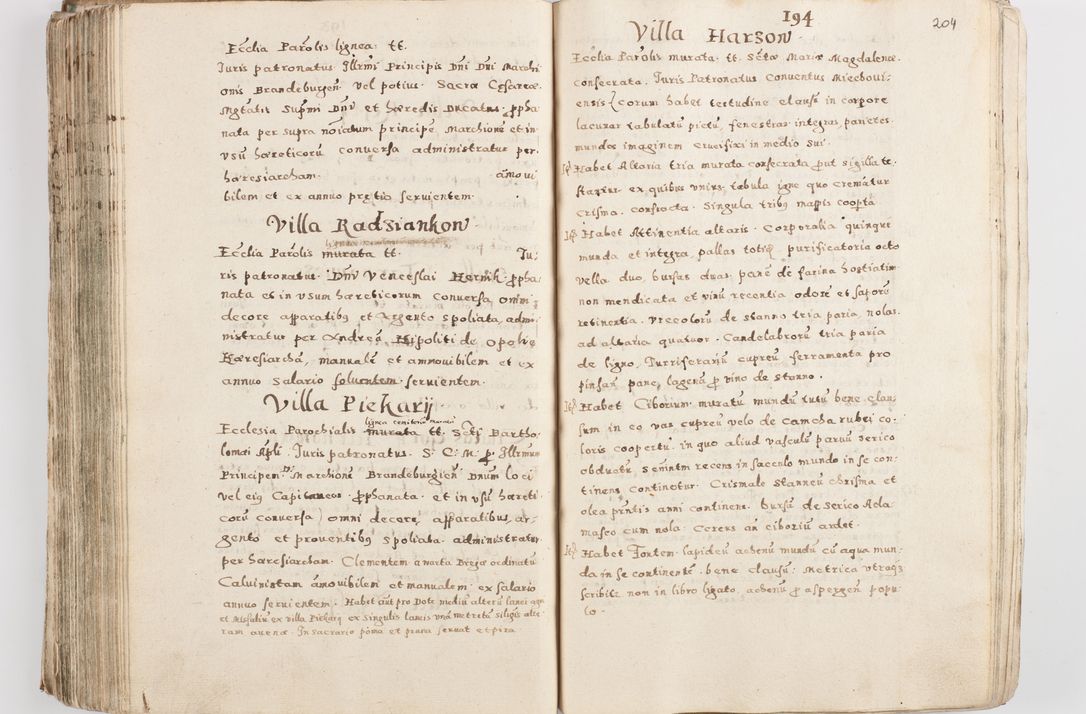 Eccłia Parołis lignea tt.
Iuris patronatus Illrmi Principis Dni Dni Marchi
onis Brandeburgeñ vel potius Sacræ Cæsareæ
Mgtatis Supmi Dni et hæredis Ducatus ꝓpha
nata per supra noiatum principē, Marchionē et in
vsū hæreticorū conuersa administratur per
hæresiarcham amoui
bilem et ex annuo prętio seruientem.
Villa Radziankow
Eccłia Parołis murata tt. Iu:
ris patronatus Dni Venceslai ꝓpha
nata et in vsum hæreticorum conuersa, omni
decore apparatibꝯ et Argento spoliata, admi:
nistratur per Andreā Hippoliti de Opolie
Hæresiarchā, manualē et ammouibilem et ex
annuo salario soluentem seruientem.
Villa Piekarij
lignea cemiterio
Ecclesia Parochialis murata tt. Scti Bartho
lomæi Apłi. Iuris patronatus S. C. M. ꝑ Illrmum
Principem Dñ Marchionē Brandeburgieñ Dnum loci
vel eiꝯ Capitaneos ꝓphanata et in vsū hæreti
corū conuersa, omni decore, apparatibus, ar:
gento et prouentibꝯ spoliata. administratur
per hæresiarcham Clementem a narta Brega ordinatū
Caluinistam āmouibilem et manualem ex salario
annuo seruientem. Habet aūt pro Dote mediū alterū lanei agri
et Missaliū ex villa Piekarij ex singulis laneis vnā metretū siliginis alte
ram auenæ. In sacrario poma et pruna seruat et pira
194
204
Villa Harzow
Eccłia Parołis murata tt. Sctæ Mariæ Magdalenæ
consecrata. Iuris Patronatus Conuentus Miechoui:
ensis, Corum habet testudine clausū in corpore
lacunar tabulatū pictū, fenestras integras, parietes
mundos imaginem crucifixi in medio sui.
Itē Habet Altaria tria murata consecrata put sigilla te:
stantur ex quibus vniꝯ tabula igne quo crematur
crisma confracta. Singula tribꝯ mappis cooptā
Itē Habet Attinentia altaris. Corporalia quinque
munda et integra, pallas totiđ purificatoria octo
vella duo, bursas duas, panē de farina hostiatim
non mendicata et vinū recentia odorē et saporē
retinentia. Vrceolorū de stanno tria paria, nolas
ad altaria quatuor. Candelabrorū tria paria
de ligno, Turriferariū cupreū ferramenta pro
pinsañ pane, lagenā ꝓ vino de stanno.
Itē Habet Ciborium muratū mundū tutū bene clau
sum in eo vas cupreū velo de Camcha rubei co:
loris coopertū, in quo aliud vasculū paruū serico
obductū, s enim recens in sacculo mundo in se con:
tinens continetur. Crismale stanneū chrisma et
olea pñtis anni continens. bursā de serico Ada
masco cum nola. Cereus añ ciboriū ardet.
Itē Habet Fontem lapideū ahenū mundū cū aqua mun
da in se continentē bene clausū: Metrica vtraqꝫ
scribitꝛ non in libro ligato, ahenū ꝓ aspergeñ popu
lo.